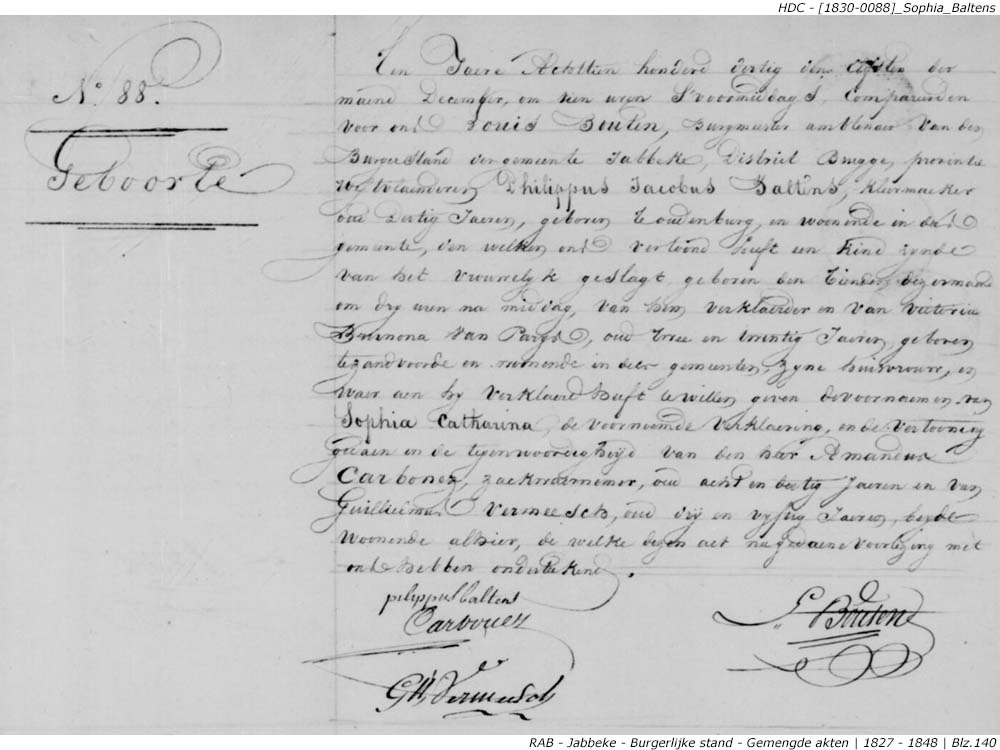 HDC - [1830-0088]_Sophia_Baltens
N.º 88.
Geboorte
Ten Jaere Achttien honderd dertig den elfsten der
maend December, om tien uren s'voormiddags, Compareerden
voor ons Louis Bouten, Burgmeester ambtenaer van den
Burgerstand der gemeente Jabbeke, District Brugge, provintie
Westvlaenderen Philippus Jacobus Baltens, kleermaeker
oud dertig Jaeren, geboren te oudenburg, en woonende in deese
gemeente, den welken ons vertoond heeft een kind zynde
van het vrouwelyk geslagt geboren den tienden dezer maend
om dry uren na middag, van hem verklaerder en van victoria
Brunona Van Parys, oud twee en twintig Jaeren, geboren
te zandvoorde en woonende in deese gemeenten, zyne huisvrouwe, en
waer aen hy verklaerd heeft te willen geven de voornaemen van
Sophia Catharina, de voornoemde verklaering, en de vertooning
gedaen in de tegenwoordigheyd van den heer Amandus
Carbonez, zaekwaernemer, oud acht en Jaeren en van
Guillielmus Vermeesch, oud vyf en vyftig Jaeren, beyde
woonende alhier, de welke dezen act na gedaene voorlezing met
ons hebben onderteekend.
pilippus baltens
Carbonez
L. Bouten
G H Vermeesch
RAB - Jabbeke - Burgerlijke stand - Gemengde akten | 1827 - 1848 | Blz.140